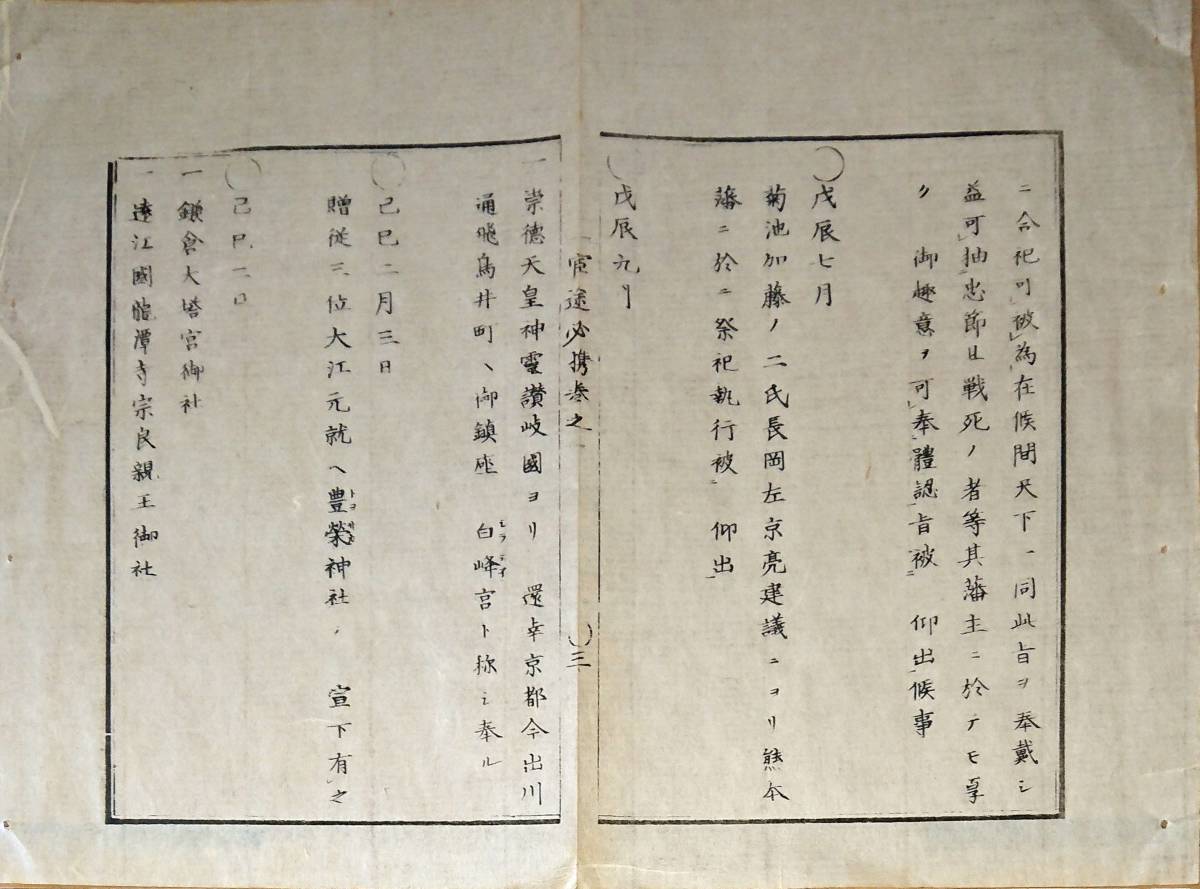 ニ合祀可被為在候間天下一同此旨ヲ奉戴シ
益可抽忠節且戦死ノ者等其藩主ニ於テモ厚
ク 御趣意ヲ可奉體認旨被 仰出候事
○戊辰七月
菊池加藤ノ二氏長岡左京亮建議ニヨリ熊本
藩ニ於ニ祭祀執行被 仰出
○戊辰九月
官途必携巻之一 ○三
一崇德天皇神霊讃岐國ヨリ 還幸京都今出川
通飛鳥井町ヘ御鎮座 白峰宮ト称シ奉ル
○己巳二月三日
贈従三位大江元就ヘ豊榮神社ノ 宣下有之
○己巳二日
一鎌倉大塔宮御社
一遠江國 潭寺宗良親王御社